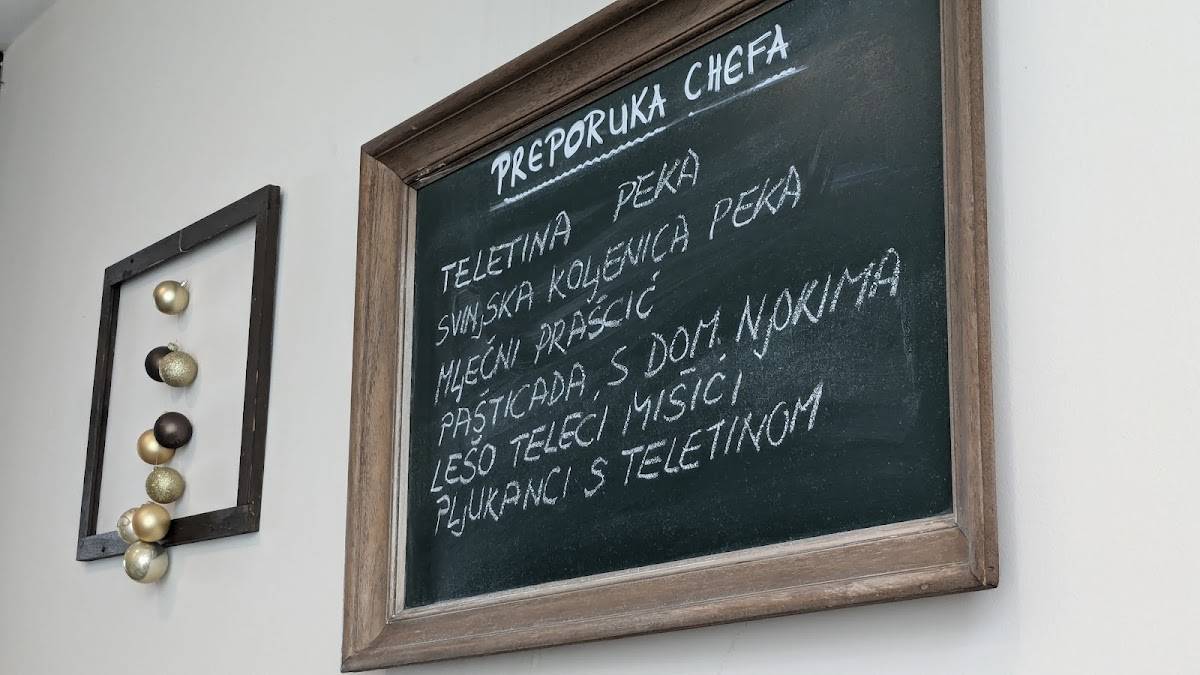 PREPORUKA CHEFA
TELETINA PEKA
SVINJSKA KOLJENICA PEKA
MLJEČNI PRAŠČIĆ
PAŠTICADA, S DOM. NJOKIMA
LEŠO TELEĆI MIŠIĆI
PLJUKANCI S TELETINOM